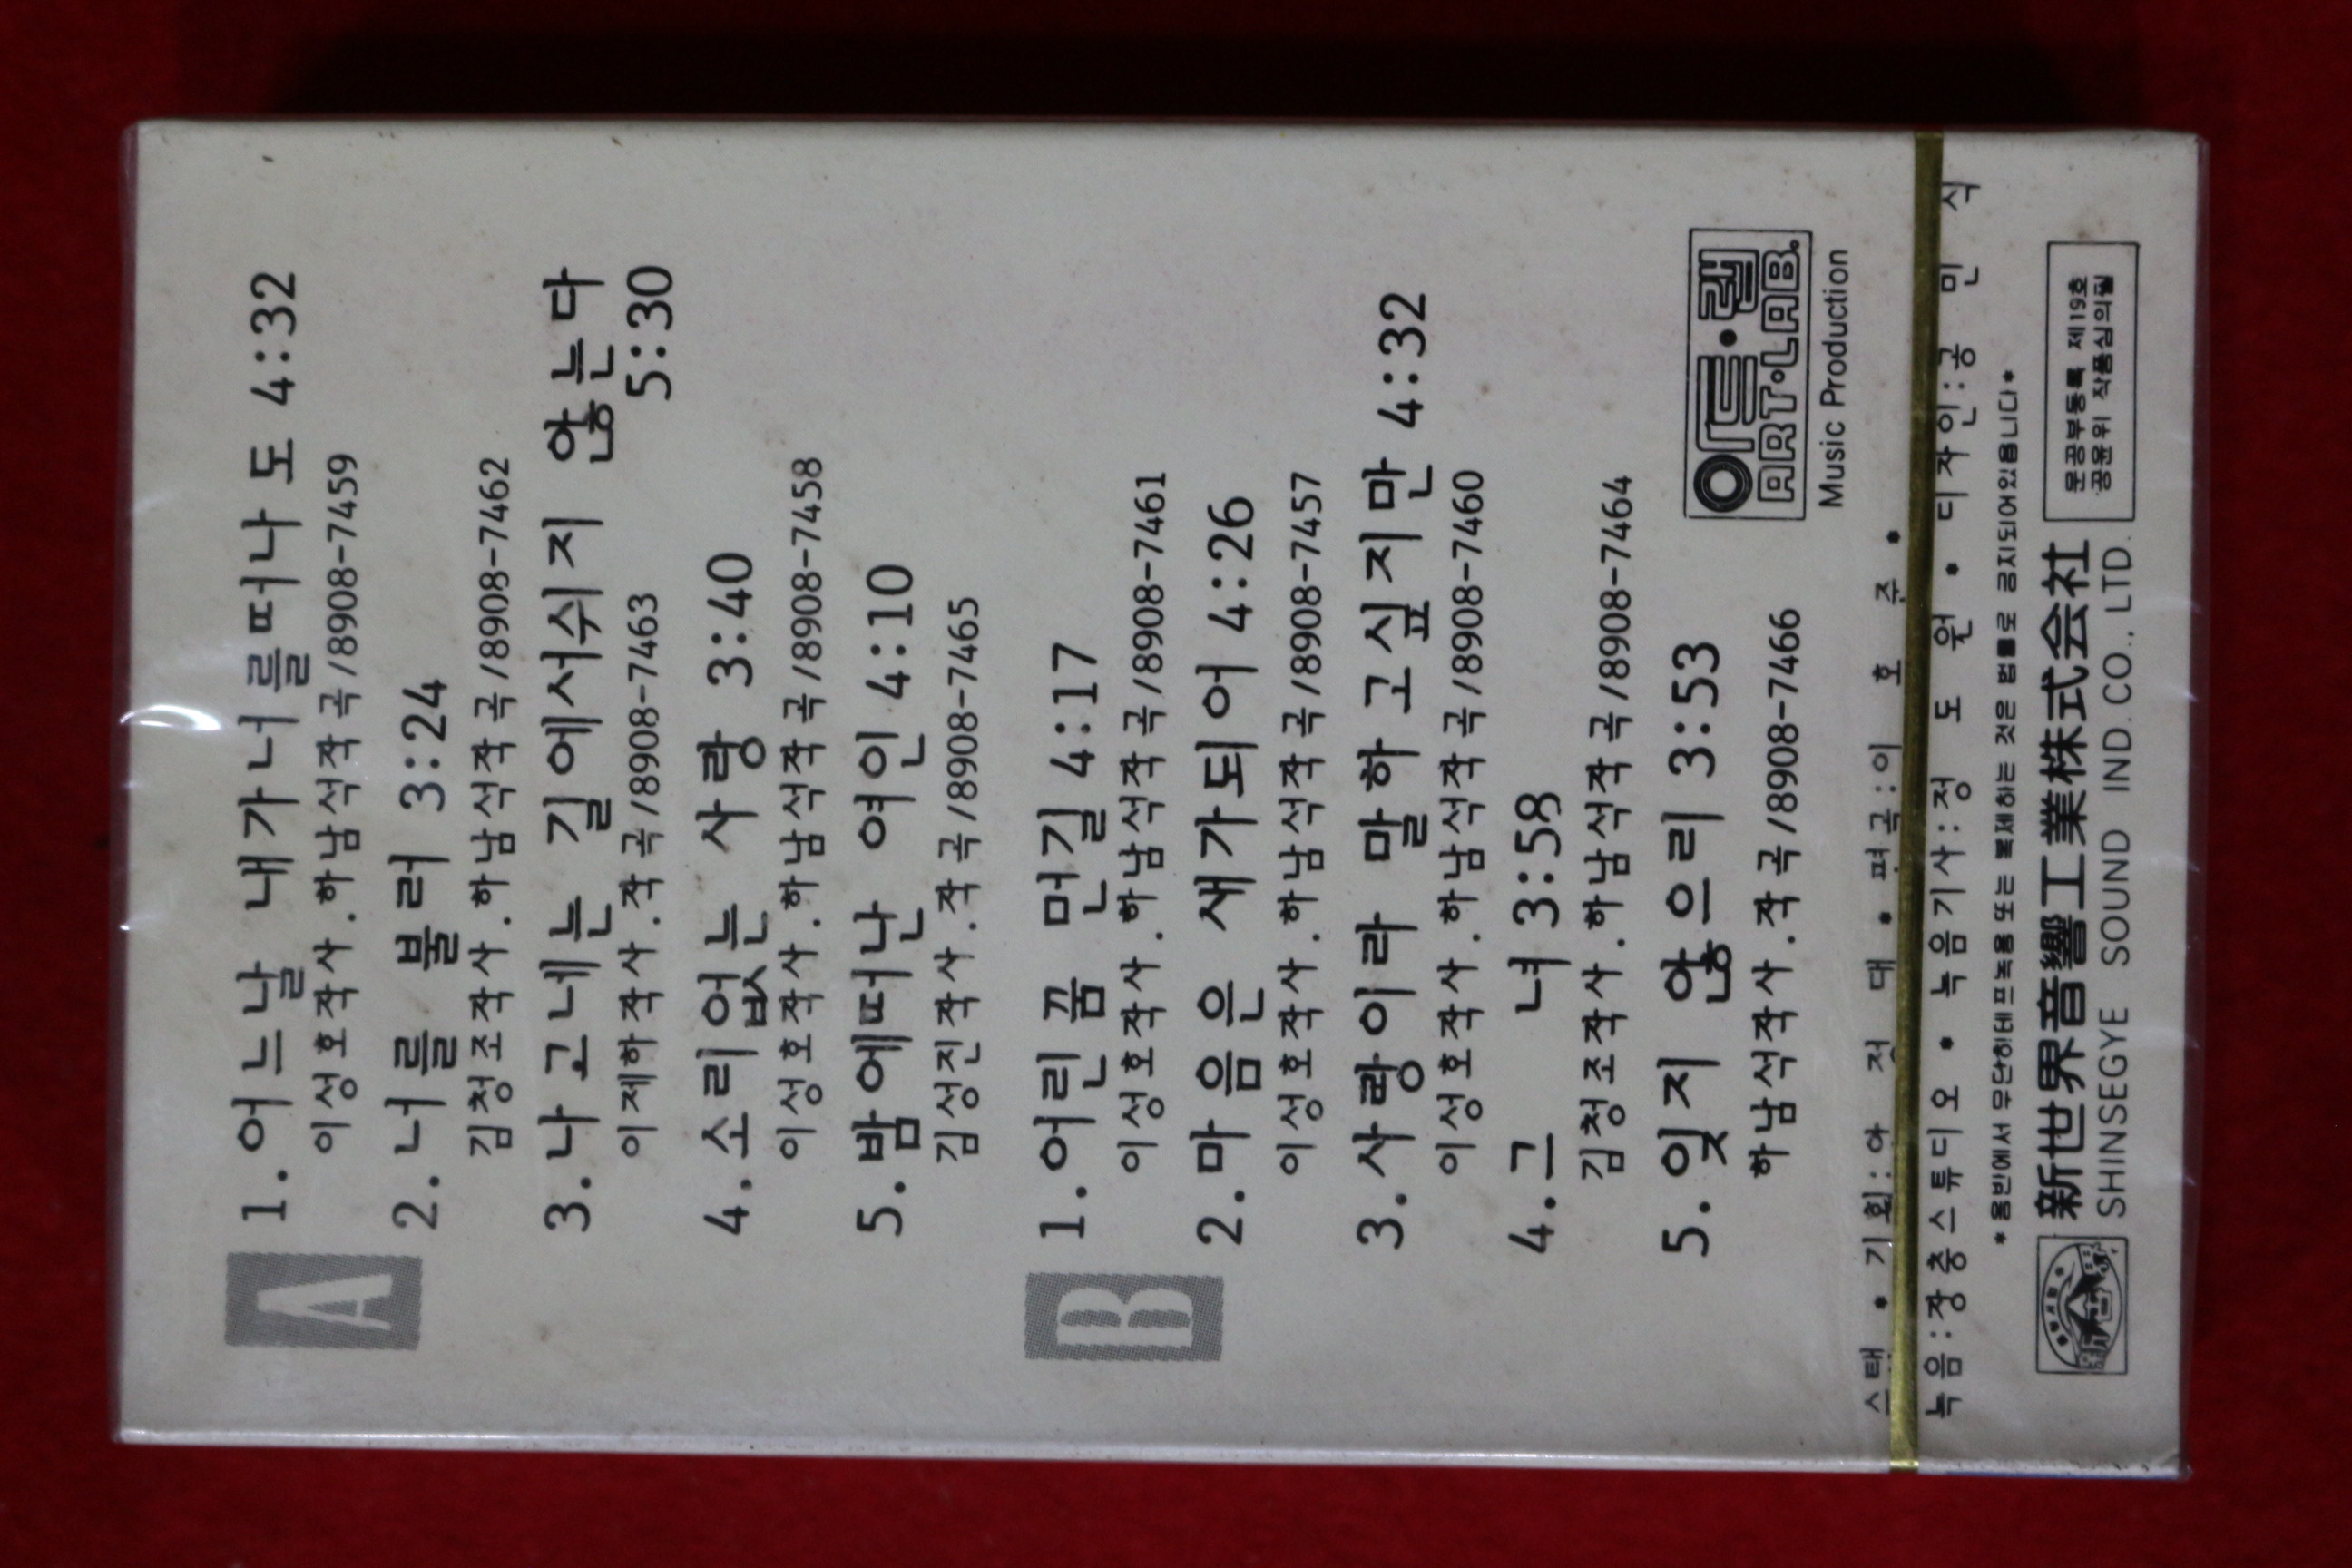 A
1. 어느날 내가너를떠나도 4:32
이성호작사.하남석작곡/8908-7459
2. 너를 불러 3:24
김청조작사.하남석작곡/8908-7462
3. 나그네는 길에서쉬지 않는다
5:30
이제하작사.작곡/8908-7463
4. 소리없는 사랑 3:40
이성호작사.하남석작곡/8908-7458
5. 밤에떠난 여인 4:10
김성진작사.작곡/8908-7465
B
1. 어린꿈 먼길 4:17
이성호작사.하남석작곡/8908-7461
2. 마음은 새가되어 4:26
이성호작사.하남석작곡/8908-7457
3. 사랑이라 말하고싶지만 4:32
이성호작사.하남석작곡/8908-7460
4. 그 녀 3:58
김청조작사.하남석작곡/8908-7464
5. 잊지 않으리 3:53
하남석작사.작곡/8908-7466
아트·랩
ART·LAB.
Music Production
스탭 * 기획:안 정 대 * 편곡:이 호 준 *
녹음:장충스튜디오 * 녹음기사:정 도 원 * 디자인:공 민 식
*음반에서 무단히테프녹음 또는 복제하는 것은 법률로 금지되어있읍니다*
新世界音響工業株式会社
SHINSEGYE SOUND IND. CO., LTD.
문공부등록 제19호
공윤위 작품심의필